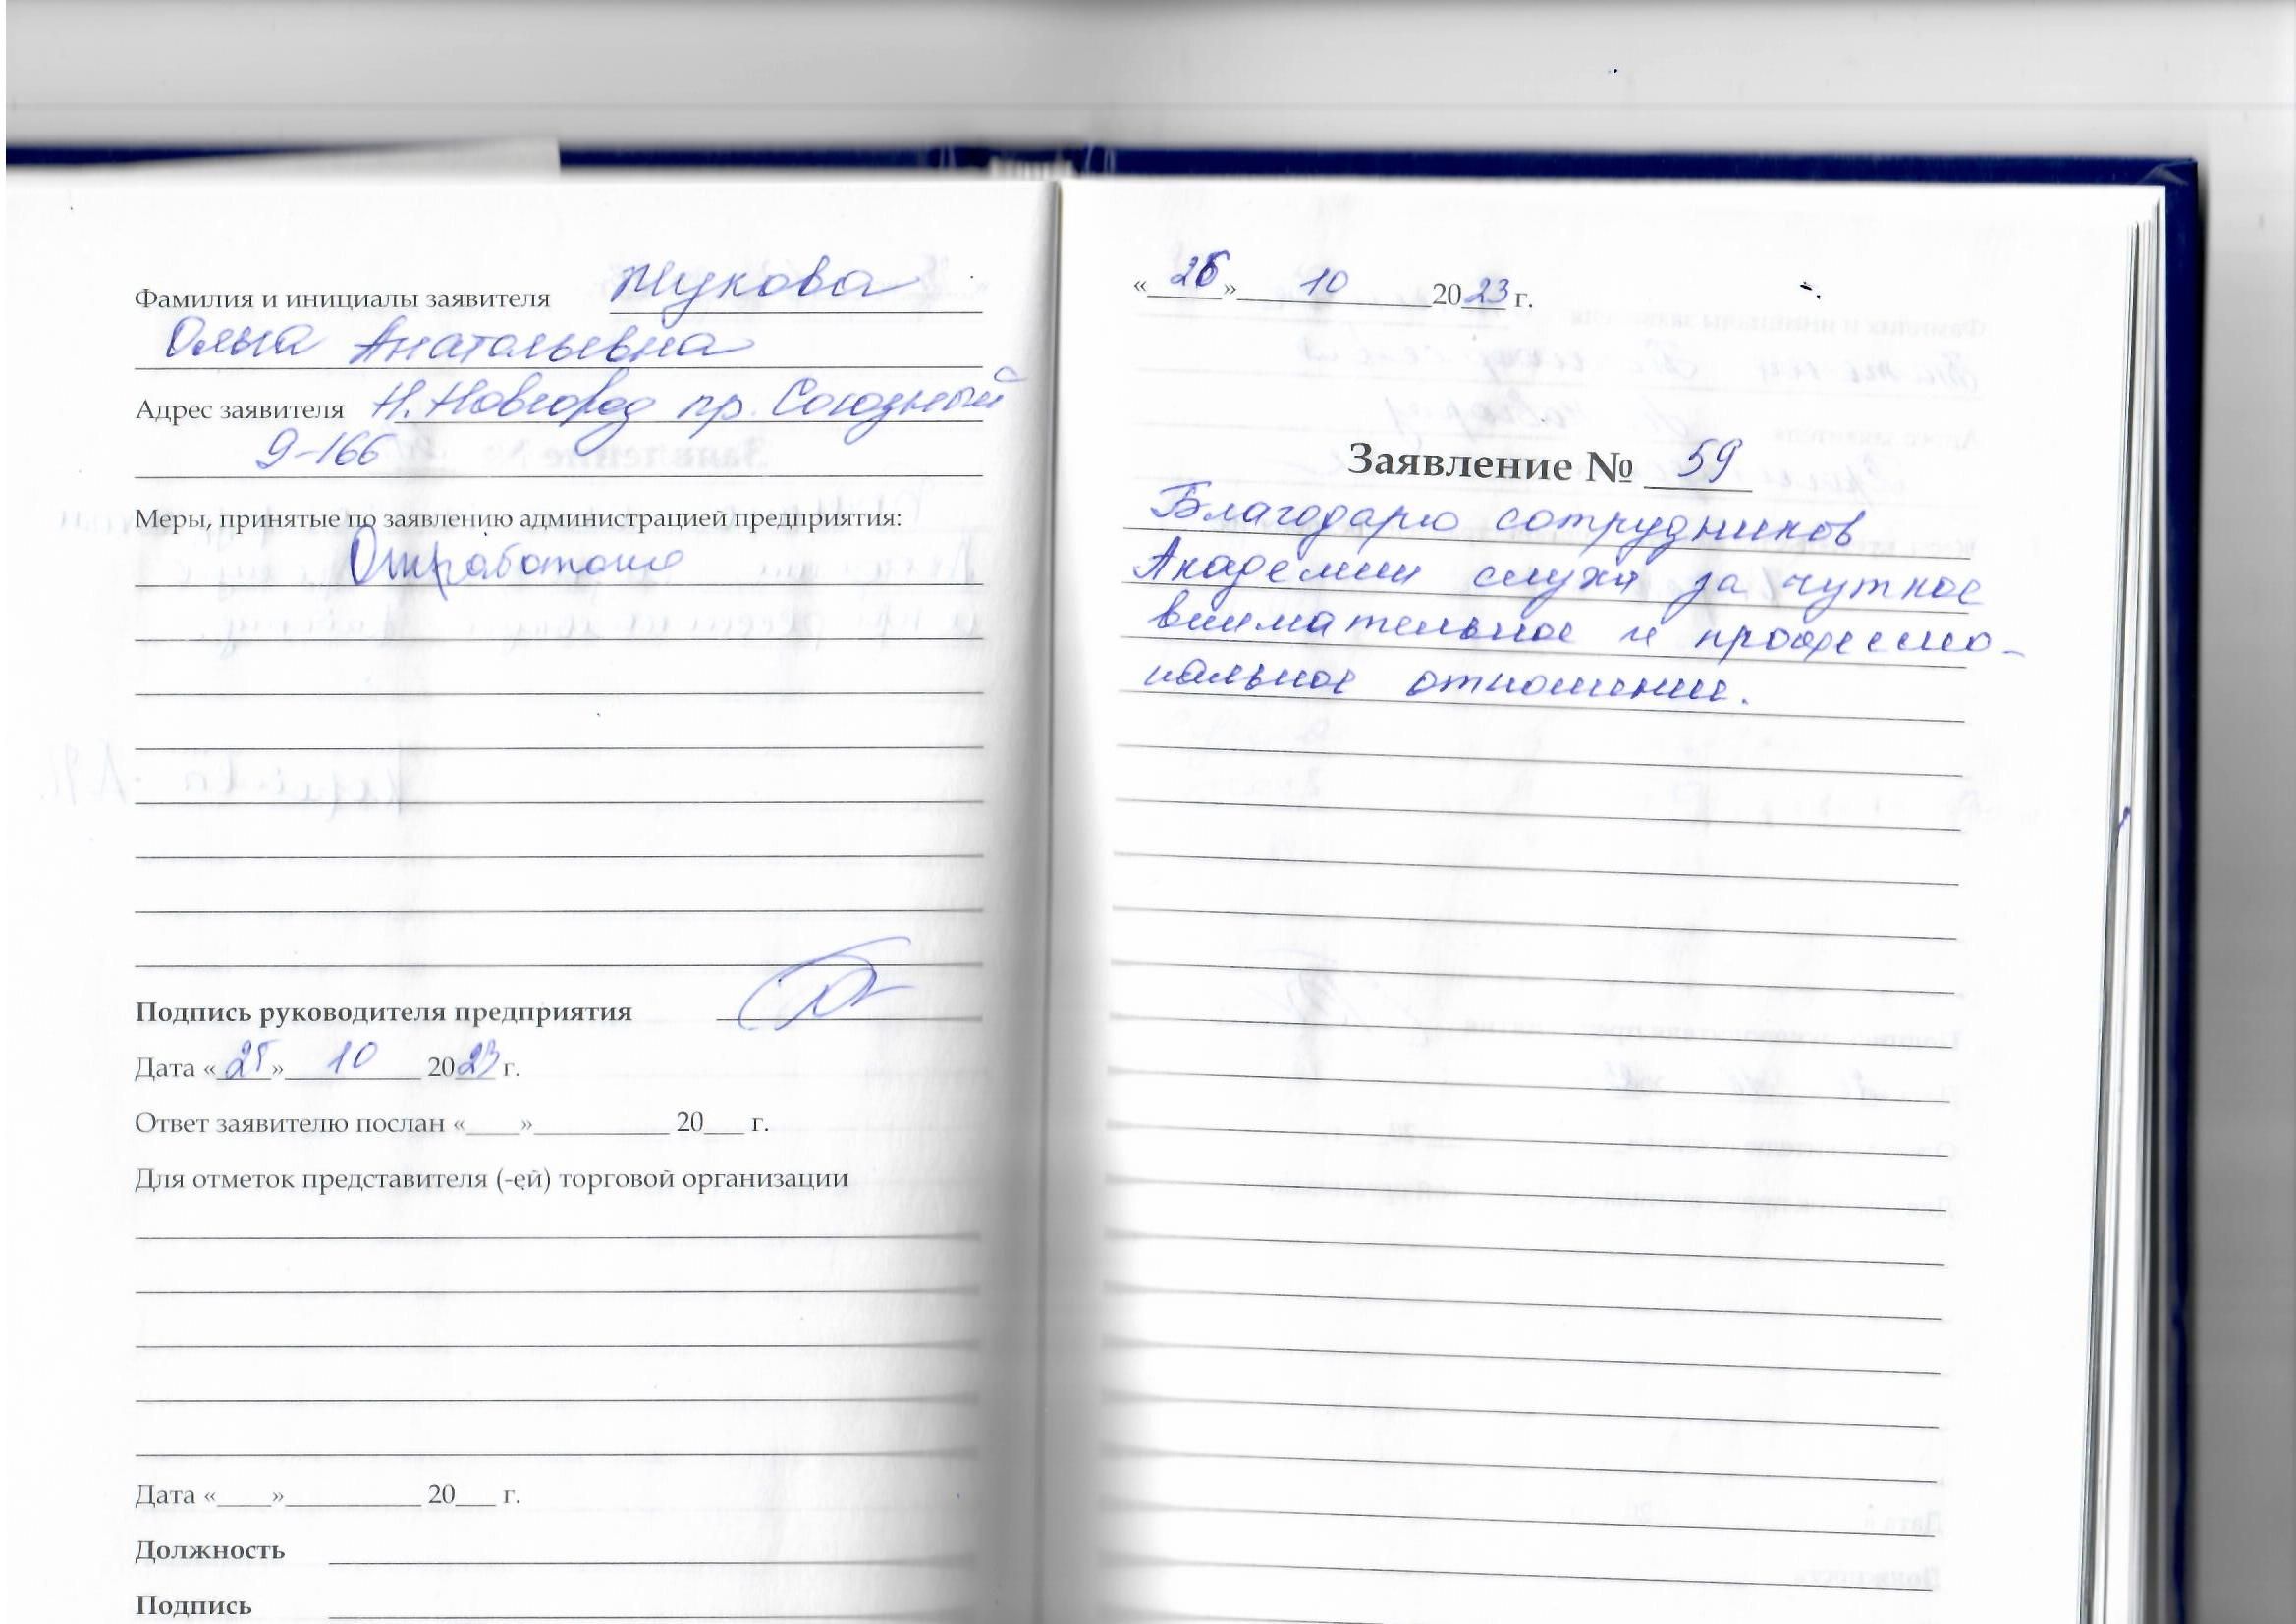 Фамилия и инициалы заявителя Жукова
Ольга Анатольевна
Адрес заявителя Н.Новгород пр. Союзный
9-166
Меры, принятые по заявлению администрацией предприятия:
Отработано
Подпись руководителя предприятия
Дата «25» 10 2023 г.
Ответ заявителю послан «____»__________ 20___ г.
Для отметок представителя (-ей) торговой организации
Дата «____»__________ 20___ г.
Должность
Подпись
« » 10 2023 г.
Заявление № 59
Благодарю сотрудников
Академии слуха за чуткое
внимательное и професси-
нальное отношение.